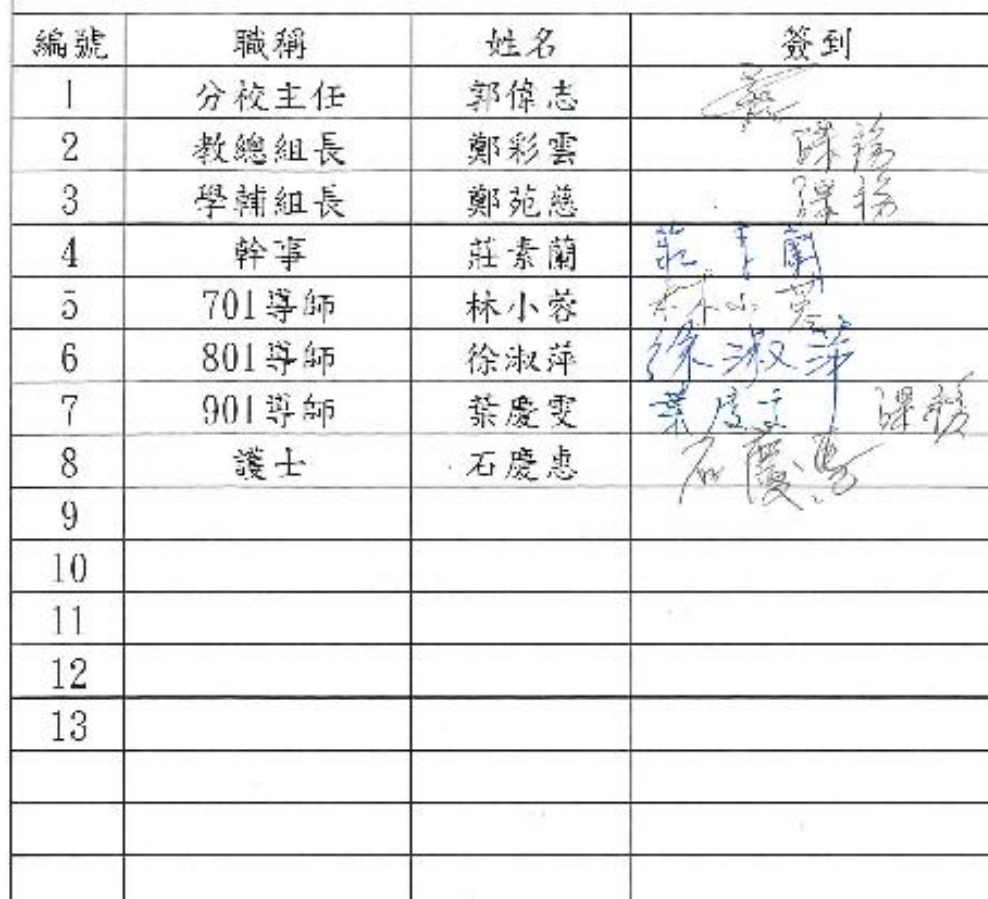 編號 職稱 姓名 簽到
1 分校主任 郭偉志
2 教總組長 鄭彩雲 課務
3 學輔組長 鄭苑慈 課務
4 幹事 莊素蘭 莊素蘭
5 701導師 林小蓉 林小蓉
6 801導師 徐淑萍 徐淑萍
7 901導師 葉慶雯 葉慶文 課務
8 護士 石慶惠 石慶惠
9
10
11
12
13